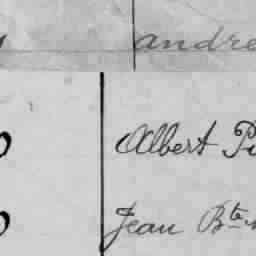 andre
Albert Pi
Jean Bte